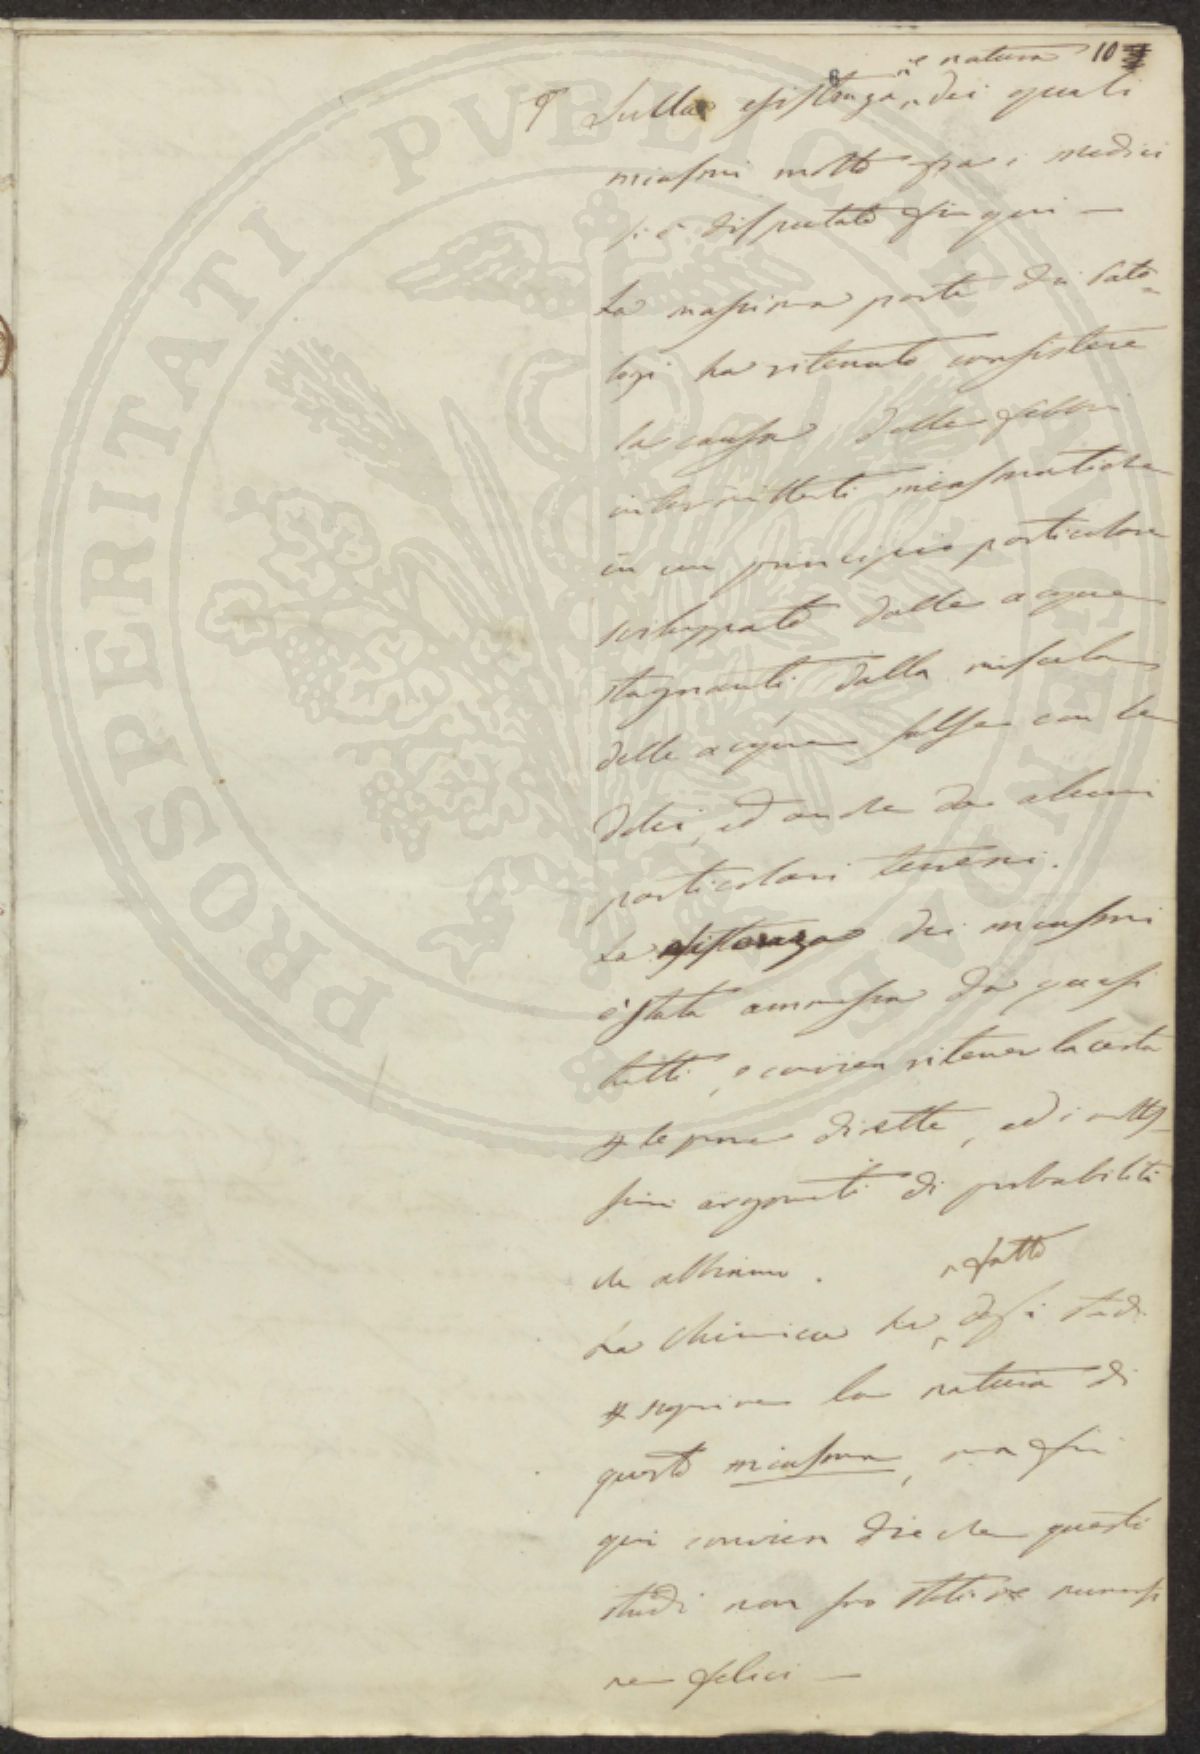 e natura 10
Sulla esistenza dei quali
miasmi molto fra i medici
si è disputato fin qui —
La massima parte dei Pato=
logi ha ritenuto consistere
la causa delle febbri
intermittenti miasmatiche
in un principio particolare
sviluppato dalle acque
stagnanti, dalla miscela
delle acque salse con le
dolci, ed anche da alcuni
particolari terreni.
La esistenza dei miasmi
è stata ammessa da quasi
tutti, e convien ritenerla certa
le prove dirette, ed i moltis=
simi argomenti di probabilità
che abbiamo.
fatto
La Chimica ha degli studi
scoprire la natura di
questo miasma, ma fin
qui convien dire che questi
studi non sono stati numerosi
ne felici —
PROSPERITATI PVBLICAE AVGENDAE